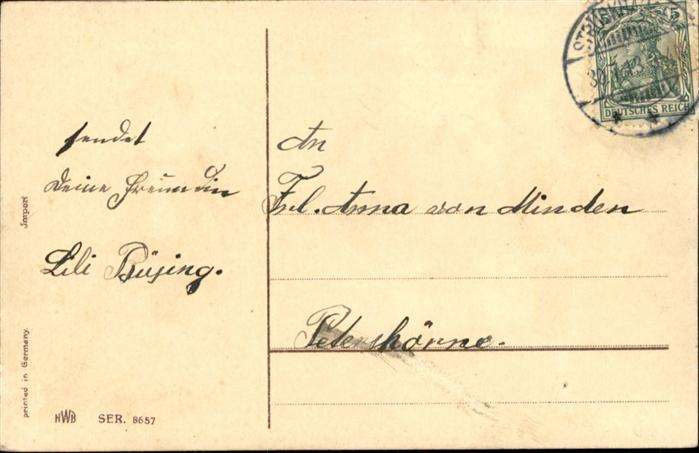 sendet
Deine Freundin
Lili Büsing.
An
Frl. Anna von Minden
Petershörne.
DEUTSCHES REICH
5
Import
printed in Germany.
HWB SER. 8657